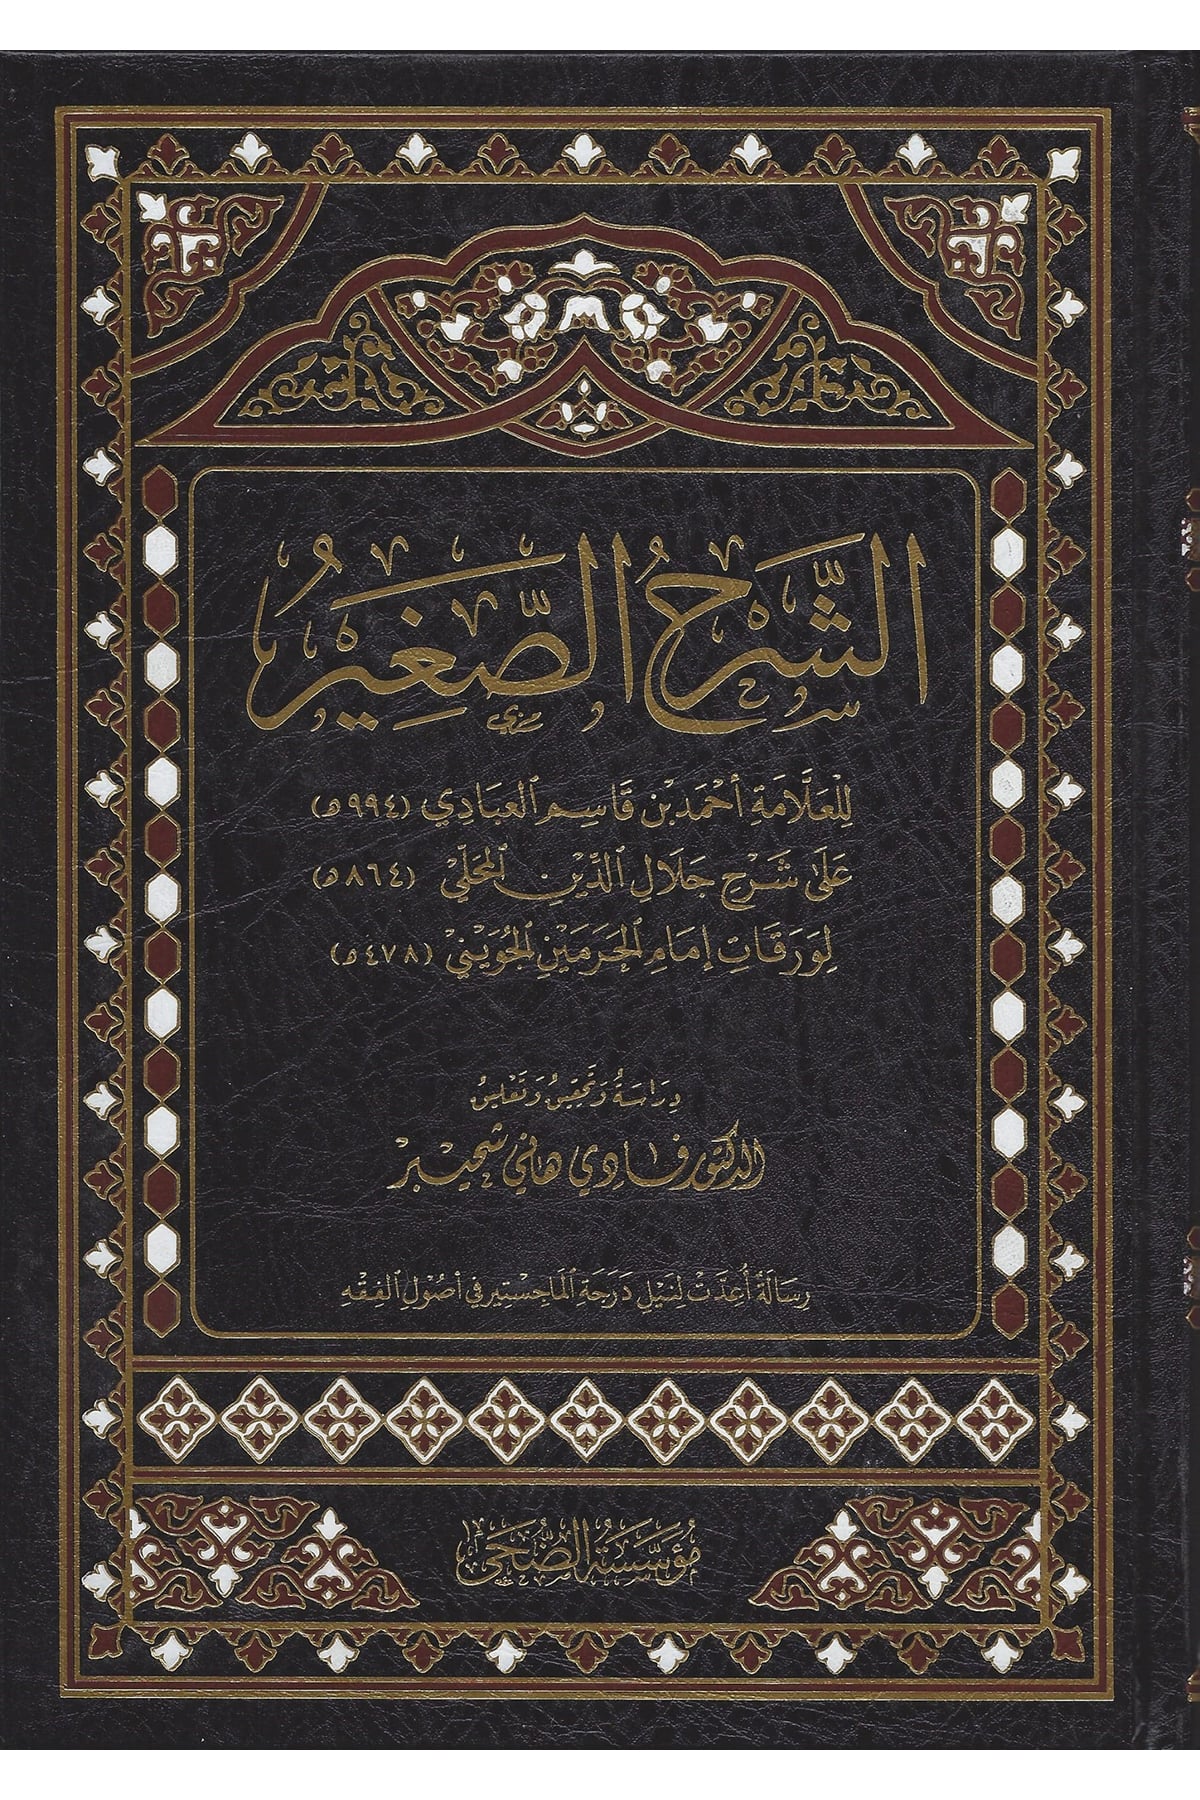 الشَّرْحُ الصَّغِيْرُ
لِلْعَلَّامَةِ أَحْمَد بْن قَاسِم العبَادِي (٩٩٤ه)
عَلَى شَرْح جَلَال الدِّين المحَلّيْ (٨٦٤ه)
لِوَرَقَاتِ إِمَامِ الحَرَمَيْنِ الجُوَيْنيْ (٤٧٨ه)
دِرَاسَةُ وَتَحْقِيقُ وَتَعْلِيقُ
الدكتور فادي هاني شحيبر
رِسَالَةٌ أُعِدَّتْ لِنَيْلِ دَرَجَةِ الْمَاجِسْتِيرِ فِي أُصُولِ الْفِقْهِ
مُؤَسَّسَةُ الضُّحَى